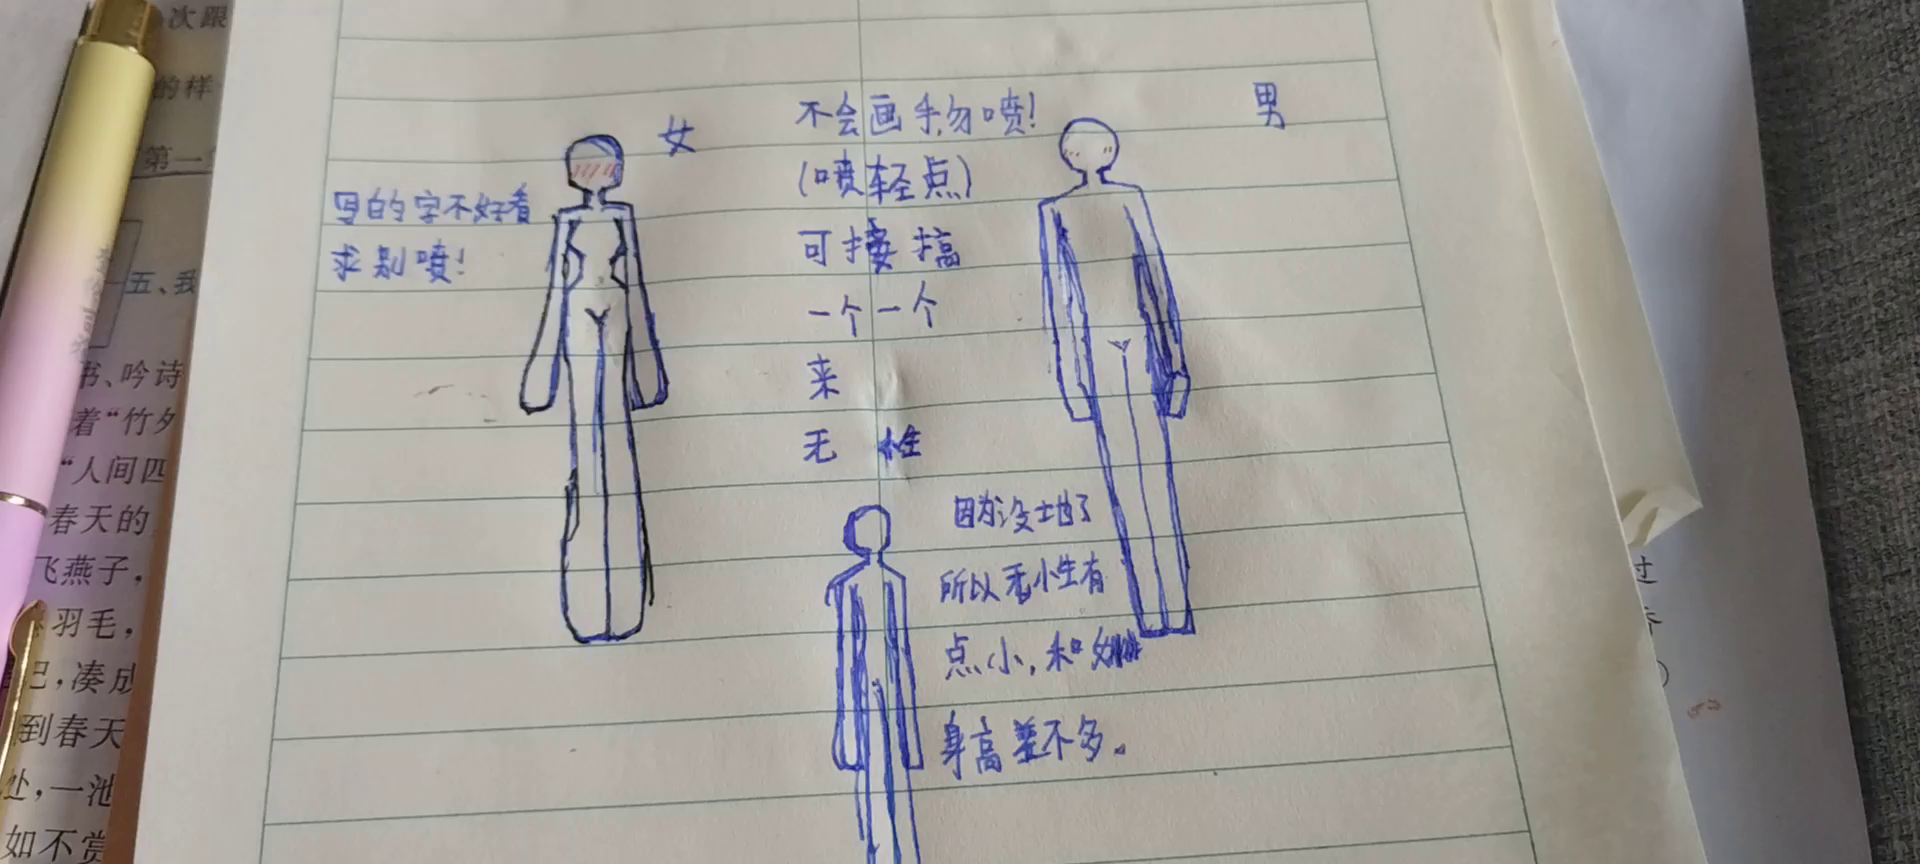 次跟
的样
第一
五、我
书、吟诗
着“竹夕
“人间四
春天的
飞燕子，
羽毛，
已，凑成
到春天
处，一池
如不赏
女
写的字不好看
求别喷！
不会画手勿喷！
（喷轻点）
可接搞
一个一个
来
无 性
男
因为没地了
所以无性有
点小，和
身高差不多。
过